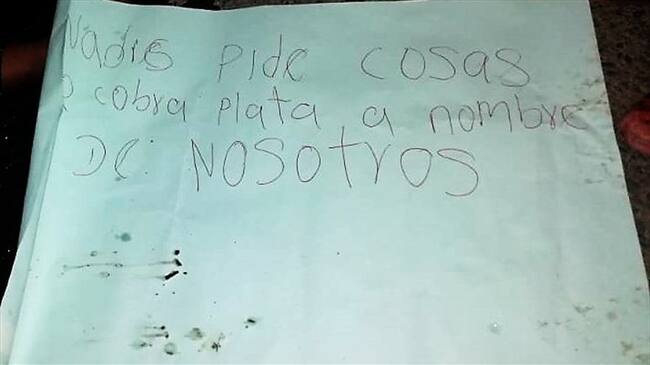 Nadie pide cosas
o cobra plata a nombre
DE NOSOTROS